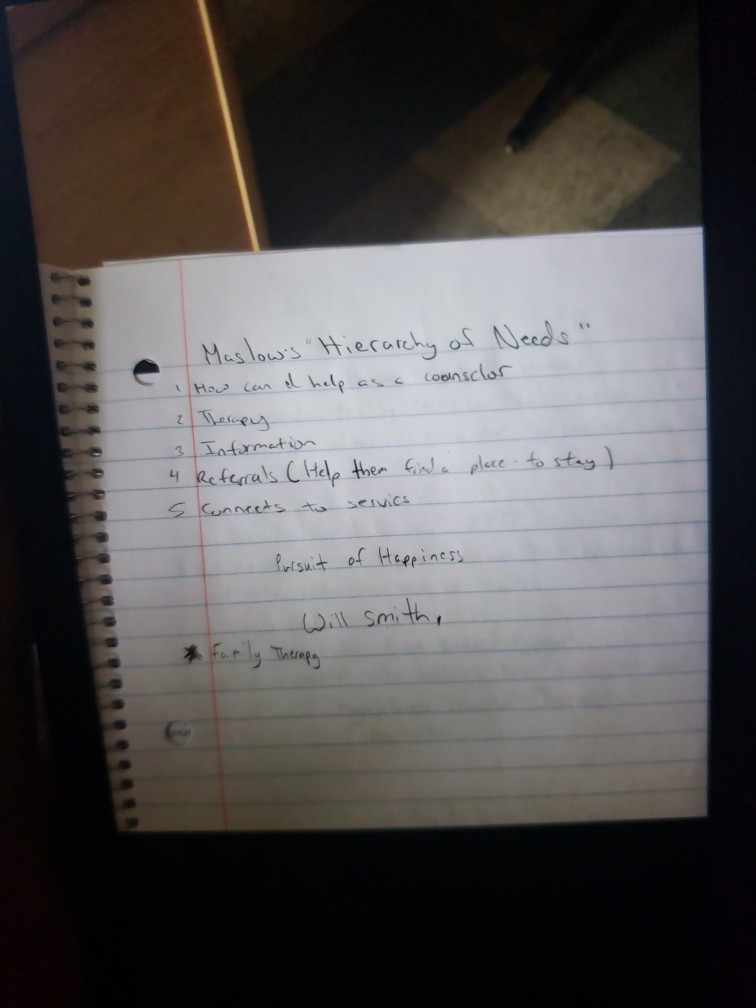 Maslow's "Hierarchy of Needs"
1 How can I help as a counsclor
2 Therapy
3 Information
4 Referrals (Help them find a place to stay)
5 Connects to servics
Pursuit of Happiness
Will Smith,
* Family Therapy